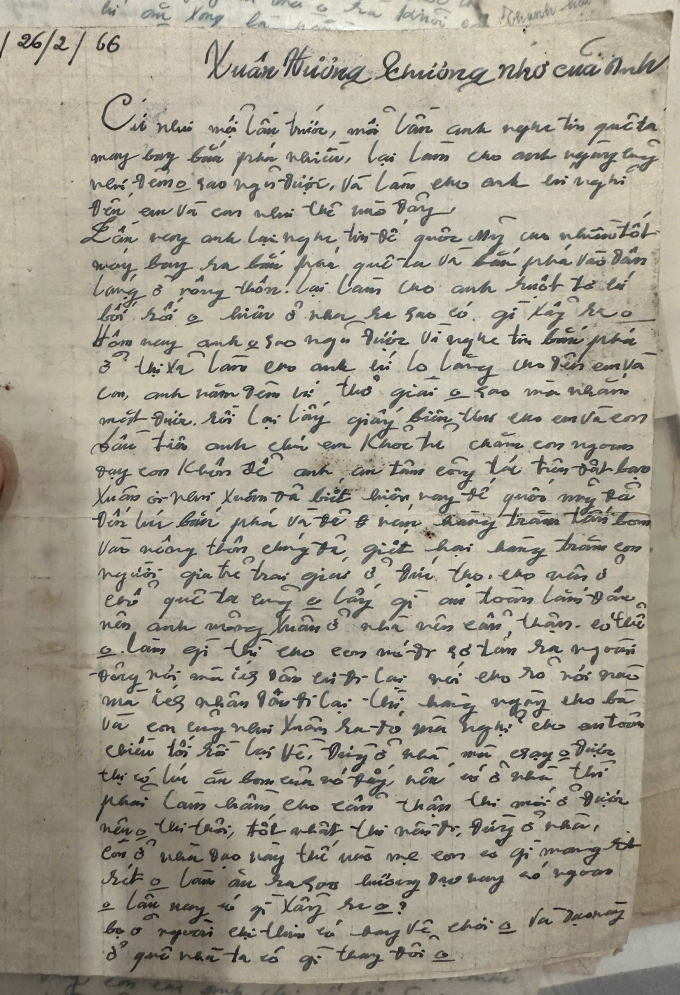 / 26/2/ 66
Xuân Hương thương nhớ của Anh
Cứ như mọi lần trước, mỗi lần anh nghe tin quê ta
máy bay bắn phá nhiều, lại làm cho anh ngày cũng
như đêm o sao ngủ được, và làm cho anh lại nghĩ
đến em và con như thế nào đây
Lần này anh lại nghe tin đế quốc Mỹ cho nhiều tốp
máy bay ra bắn phá quê ta và bắn phá vào dân
làng ở nông thôn. lại làm cho anh ruột tơ
bối rối o hiểu ở nhà ra sao có gì xảy ra o
Hôm nay anh o sao ngủ được vì nghe tin bắn phá
ở thị xã làm cho anh lo lắng cho đến em và
con, anh nằm đêm thở giài o sao mà nhắm
mắt được. rồi lại lấy giấy biên thư cho em và con
đầu tiên anh chúc em khỏe trẻ chăm con ngoan
dạy con khôn để anh an tâm công tác trên đất bạn
Xuân ơi như Xuân đã biết hiện nay đế quốc Mỹ đã
đến lúc bắn phá và để ném hàng trăm tấn bom
vào nông thôn chúng đã giết hại hàng trăm con
người già trẻ trai gái ở Đức Thọ. cho nên ở
chỗ quê ta cũng o lấy gì an toàn lắm đâu
nên anh mong Xuân ở nhà nên cẩn thận. có thể
o làm gì thì cho con nó đi sơ tán ra ngoài
đồng nói mà ít dân cư đi lại nói cho rõ nơi nào
mà ít nhân dân đi lại thì hàng ngày cho bà
và con cũng như Xuân ra đó mà nghỉ cho an toàn
chiều tối rồi lại về, đừng ở nhà mà chạy o được
thì có lúc ăn bom của nó đấy, nếu có ở nhà thì
phải làm hầm cho cẩn thận thì mới ở được
nếu o thì thôi, tốt nhất thì nên đi, đừng ở nhà,
còn ở nhà dạo này thế nào mẹ con có gì mong
rét o làm ăn ra sao hương dạo này có ngoan
o lâu nay có gì xảy ra o?
bọ ở người chị thìn có hay về chơi o và dạo này
ở quê nhà ta có gì thay đổi o